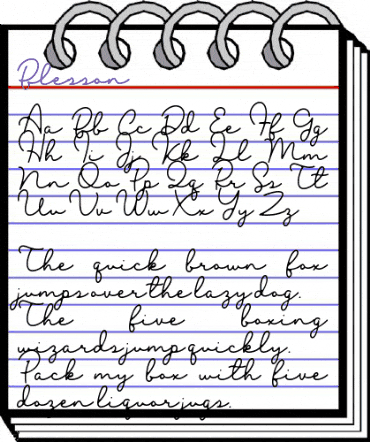 Blesson
Aa Bb Cc Dd Ee Ff Gg
Hh Ii Jj Kk Ll Mm
Nn Oo Pp Qq Rr Ss Tt
Uu Vv Ww Xx Yy Zz
The quick brown fox
jumps over the lazy dog.
The five boxing
wizards jump quickly.
Pack my box with five
dozen liquor jugs.